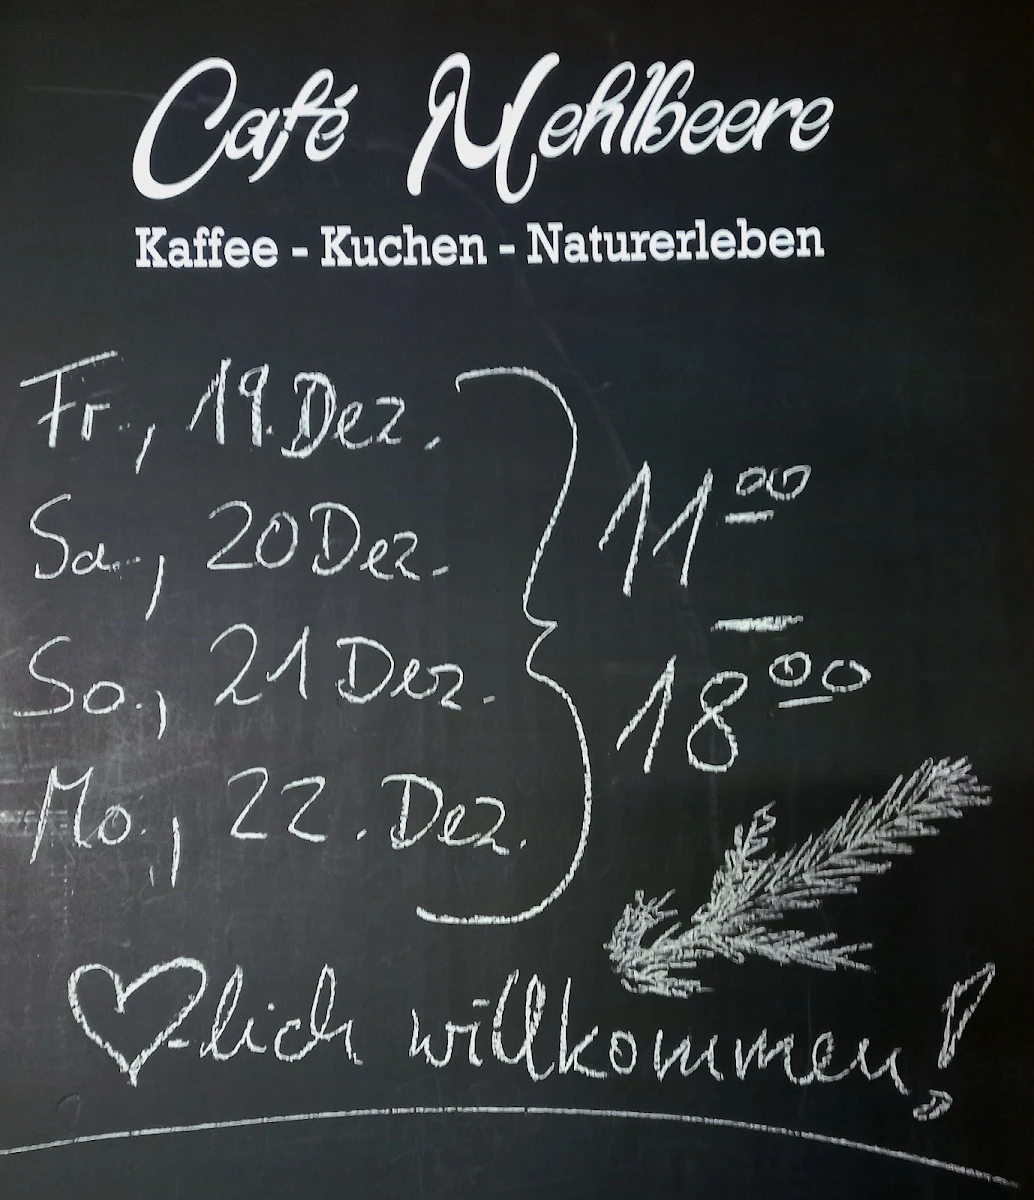 Café Mehlbeere
Kaffee - Kuchen - Naturerleben
Fr., 19. Dez.
Sa., 20 Dez.
So., 21 Dez.
Mo., 22. Dez.
11 00
–
18 00
♡-lich willkommen!